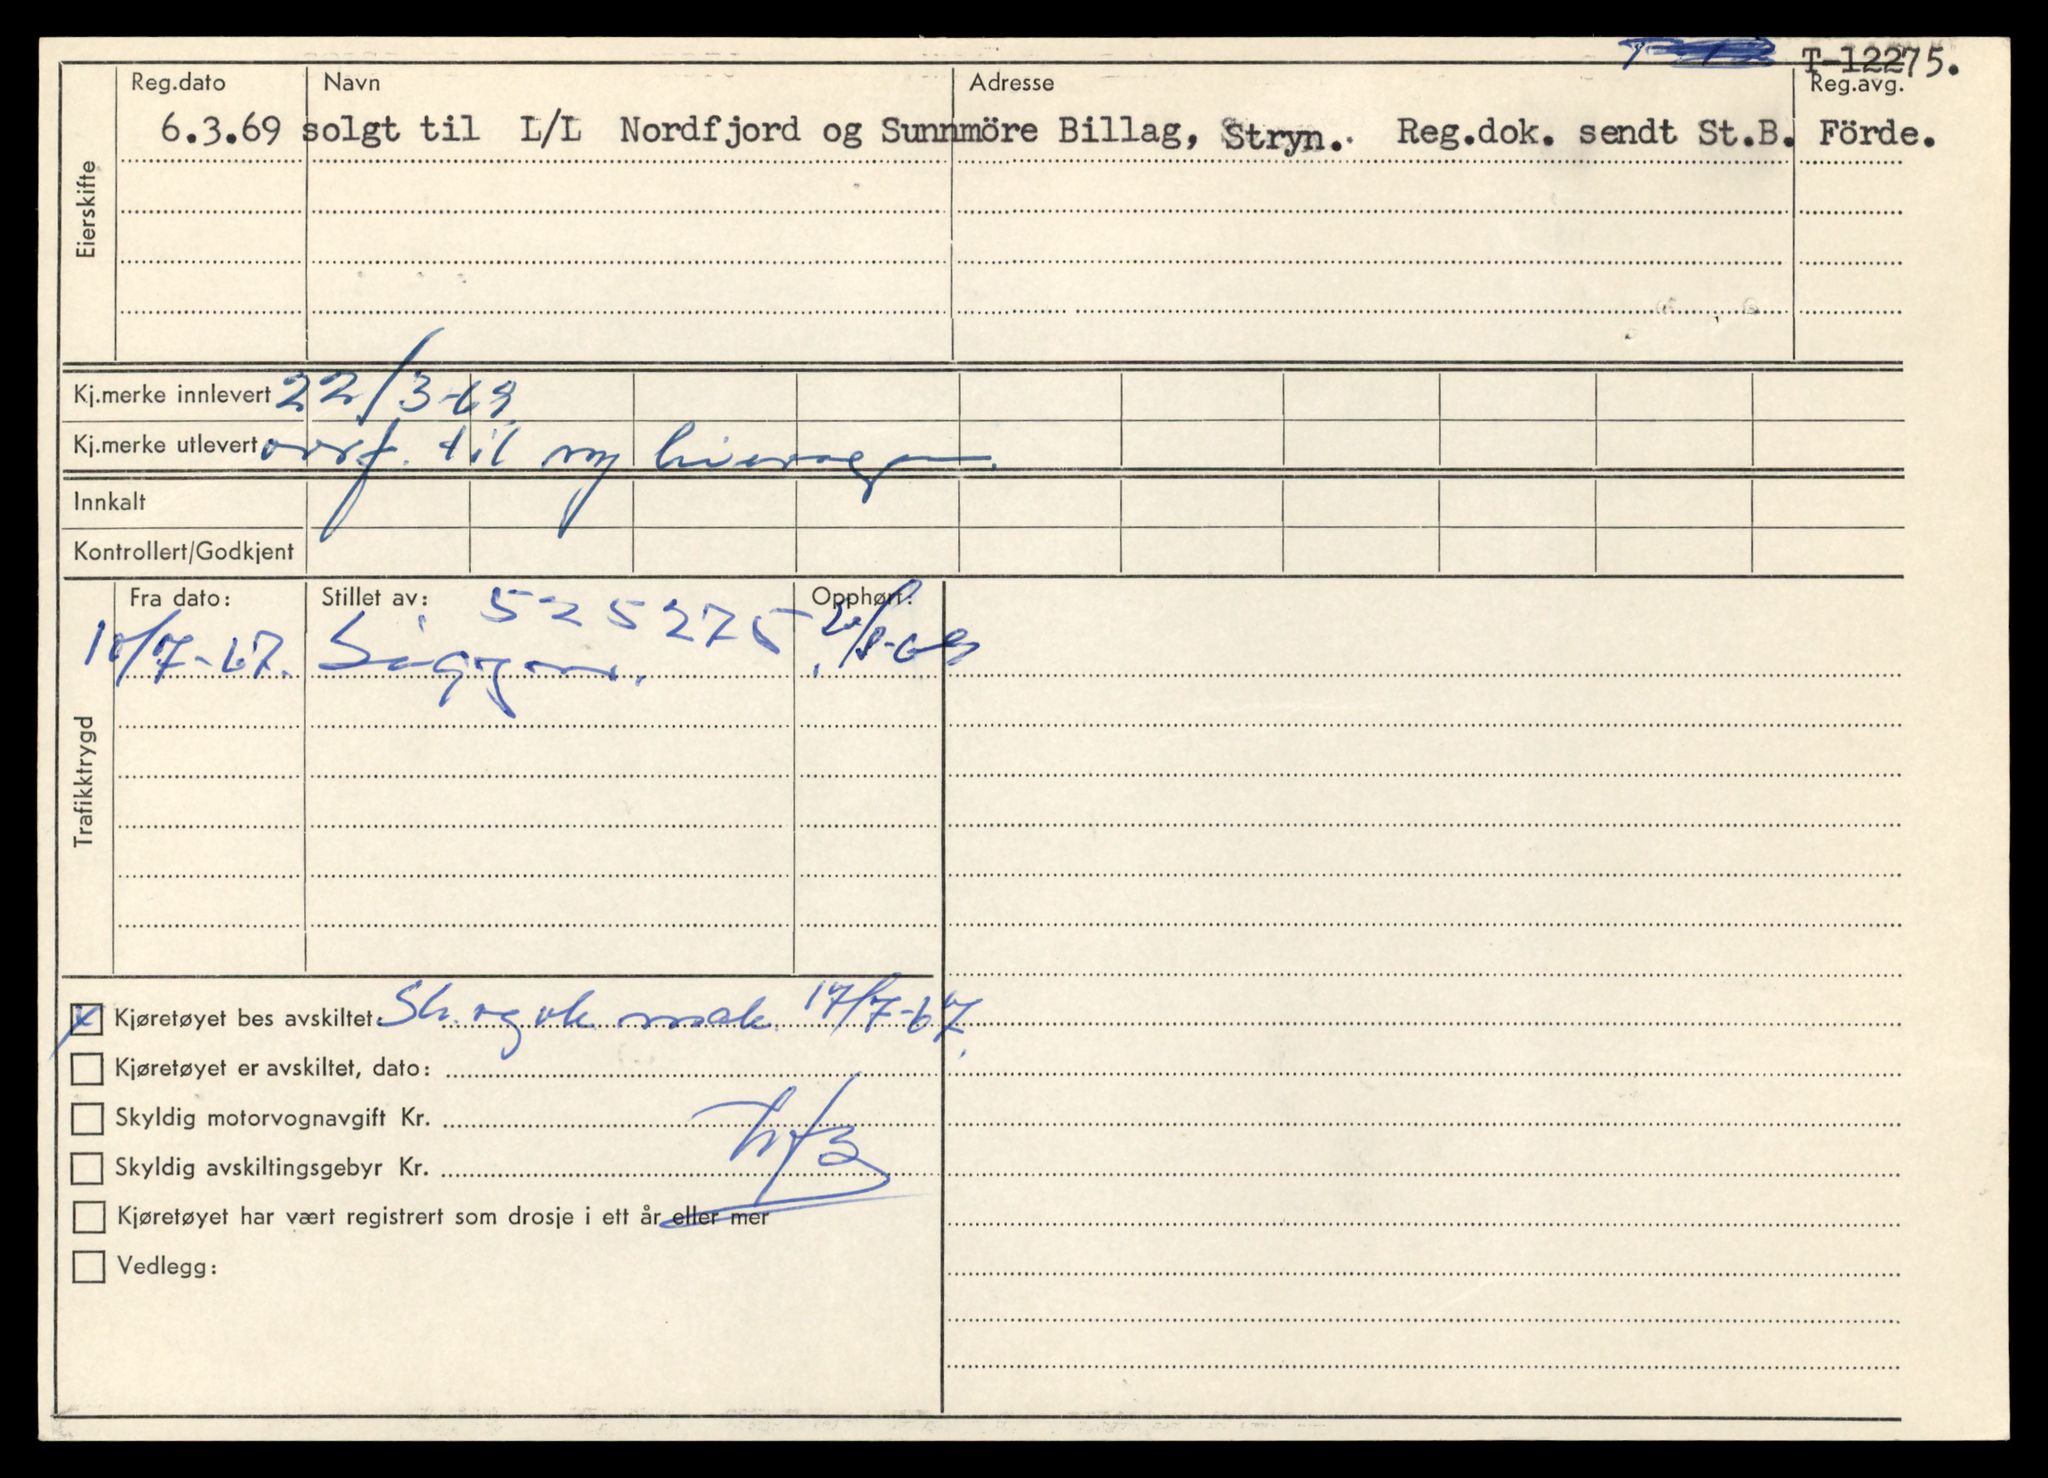 T-12275.
Reg.dato Navn Adresse Reg.avg.
6.3.69 solgt til L/L Nordfjord og Sunnmöre Billag, Stryn. Reg.dok. sendt St.B. Förde.
Eierskifte
Kj.merke innlevert 22/3-69
Kj.merke utlevert overf. til ny
Innkalt
Kontrollert/Godkjent
Fra dato: Stillet av: 525275 Opphørt:
/7-67.
Trafikktrygd
x Kjøretøyet bes avskiltet. 17/7-67.
Kjøretøyet er avskiltet, dato:
Skyldig motorvognavgift Kr.
Skyldig avskiltingsgebyr Kr.
Kjøretøyet har vært registrert som drosje i ett år eller mer
Vedlegg: